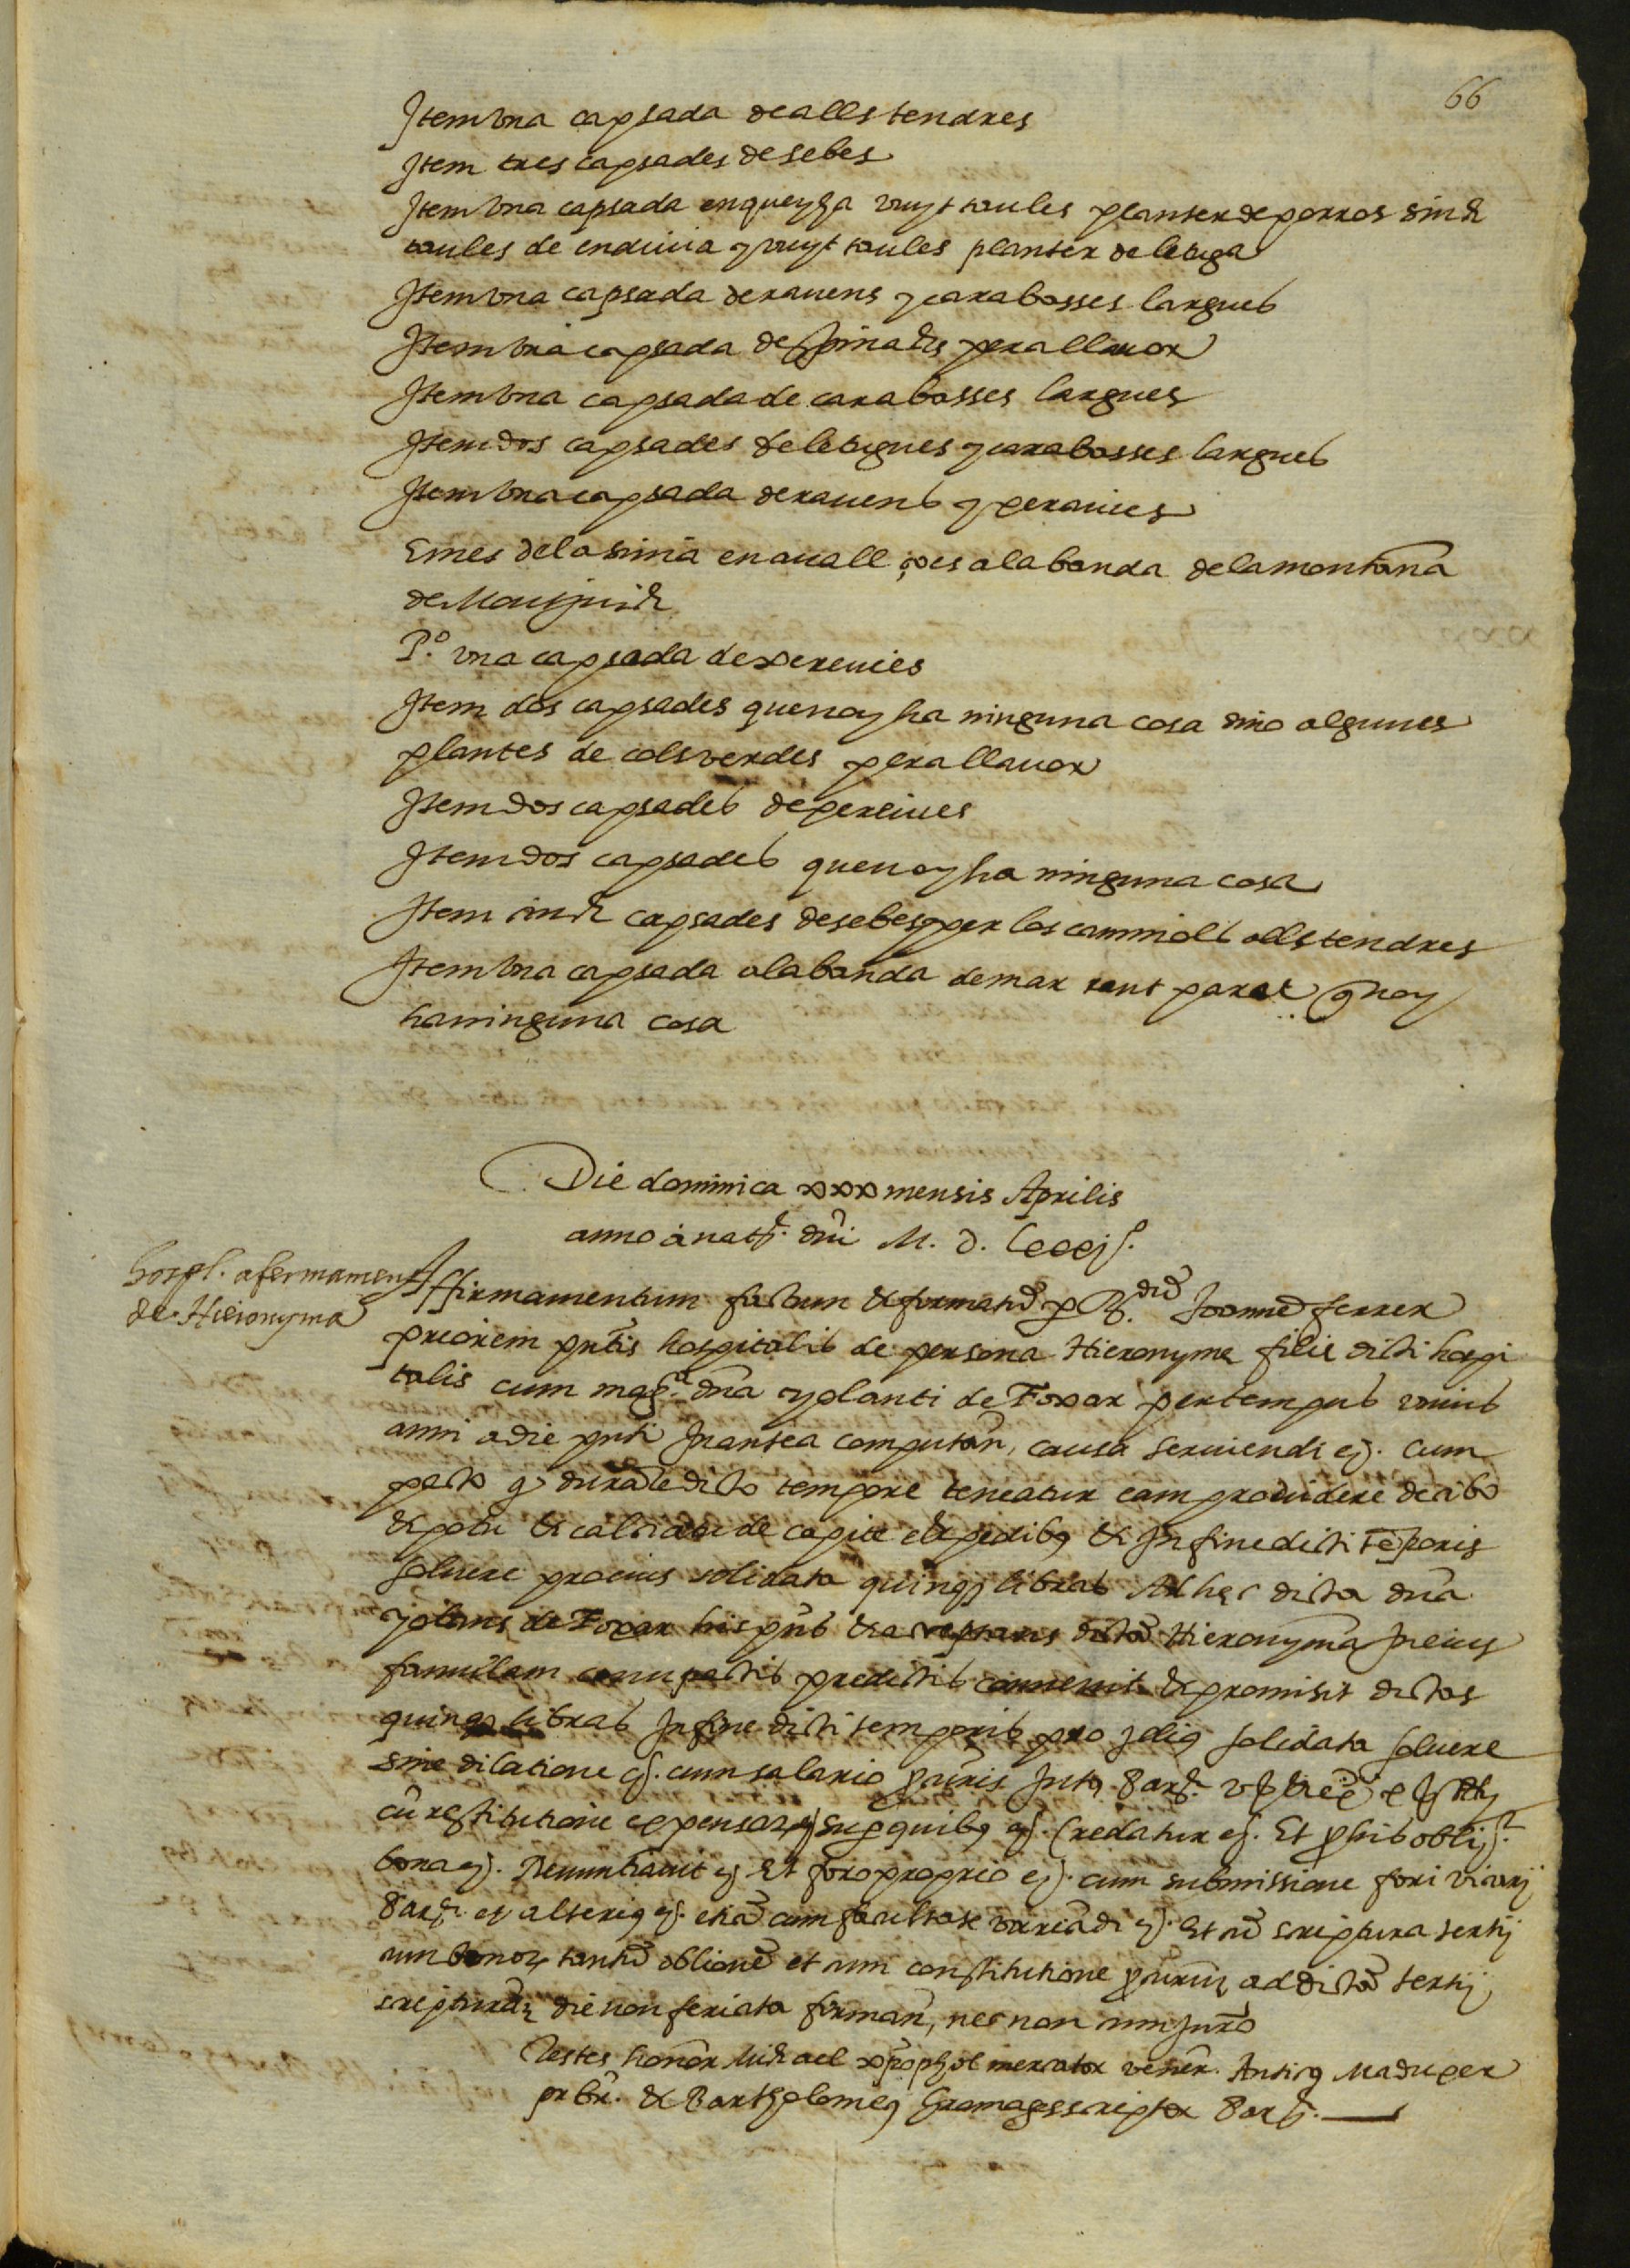 66
Item vna capsada de alls tendres
Item tres capsades de sebes
Item vna capsada en que y ha vuyt taules planter de porros sinch
taules de endiuia y vuyt taules planter de letuga
Item vna capsada de rauens y carabasses largues
Item vna capsada de spinachs per a llauor
Item vna capsada de carabasses largues
Item dos capsades de letugues y carabasses largues
Item vna capsada de rauens y
E mes de la sinia en auall ço es a la banda de la montana
de Monjuich
P.º vna capsada de xerevies
Item dos capsades que no y ha ninguna cosa sino algunes
plantes de cols verdes per a llauor
Item dos capsades de
Item dos capsades que no y ha ninguna cosa
Item sinch capsades de sebes y per los caminols alls tendres
Item vna capsada a la banda de mar tant paret q no y
ha ninguna cosa
Die dominica xxx mensis Aprilis
anno a natt. dni M. D.
hospl. afermament
de Hieronyma
Affirmamentum factum & formatu p Rdu Joanne ferrer
priorem pntis hospitalis de persona Hieronyme filie dicti hospi
talis cum mag.ca dna yolanti de Foxar per tempus vnius
anni a die pnti In antea computan, causa seruiendi ej. cum
pacto q durate dicto tempore teneatur eam prouidere de cibo
& potu & calciatu de capite & pedibq & In fine dicti teporis
soluere pro eius solidata quinq libras Ad hec dicta dna
yolans de Foxar his pns & acceptans dicta Hieronyma In eius
famulam cum pactis predictis conuenit & promisit dictas
quinq libras In fine dicti temporis pro solidata soluere
sine dilatione ej. cum salario pcuris Intq Barq.
cu restitutione expensar ej sup quibq ej. Credatur ej. Et p his obli.
bona ej. Renuntiauit ej Et foro proprio ej. cum submissione fori vicarij
Barq. ej alteriq ej. etia cum facultate variadi ej. Et scriptura tertij
cum bonor tantu oblione et cum constitutione ad dicta tertij
scriptura die non feriata firman, nec non cum Juro
Testes honor Michael xpophol mercator vener. Anticq Maduxer
prbr. & Bartholomeq Gramages scriptor Barq.